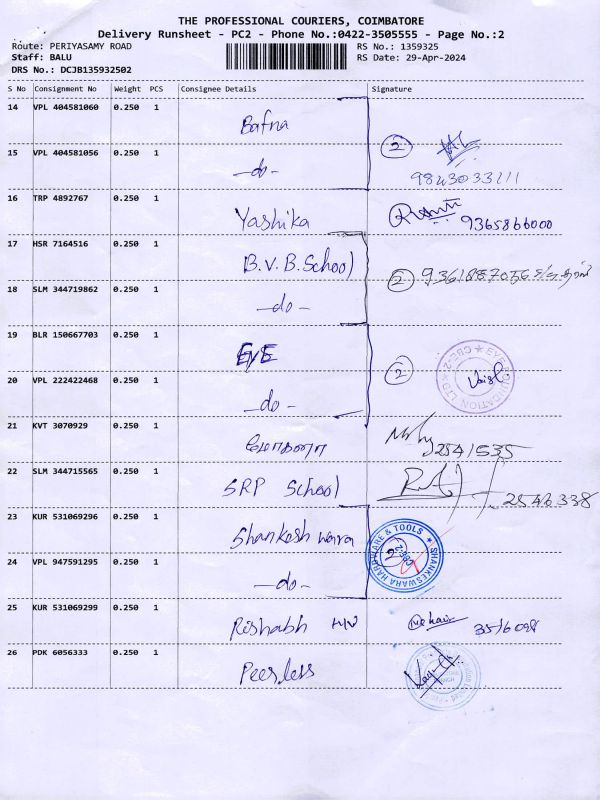 THE PROFESSIONAL COURIERS, COIMBATORE
Delivery Runsheet - PC2 - Phone No.:0422-3505555 - Page No.:2
Route: PERIYASAMY ROAD
RS No.: 1359325
Staff: BALU
RS Date: 29-Apr-2024
DRS No.: DCJB135932502
S No Consignment No Weight PCS Consignee Details Signature
14 VPL 404581060 0.250 1 Bafna
15 VPL 404581056 0.250 1 -do- 2
9843033111
16 TRP 4892767 0.250 1 Yashika 9365866000
17 HSR 7164516 0.250 1 B.V.B. School
18 SLM 344719862 0.250 1 -do- 2 9361887056
19 BLR 150667703 0.250 1 EYE
20 VPL 222422468 0.250 1 -do- 2
21 KVT 3070929 0.250 1 2541535
22 SLM 344715565 0.250 1 SRP School 2546338
23 KUR 531069296 0.250 1 Shankeshwara
SHANKESWARA HARDWARE & TOOLS
24 VPL 947591295 0.250 1 -do- 2
25 KUR 531069299 0.250 1 Rishabh H/W
26 PDK 6056333 0.250 1 Peerless